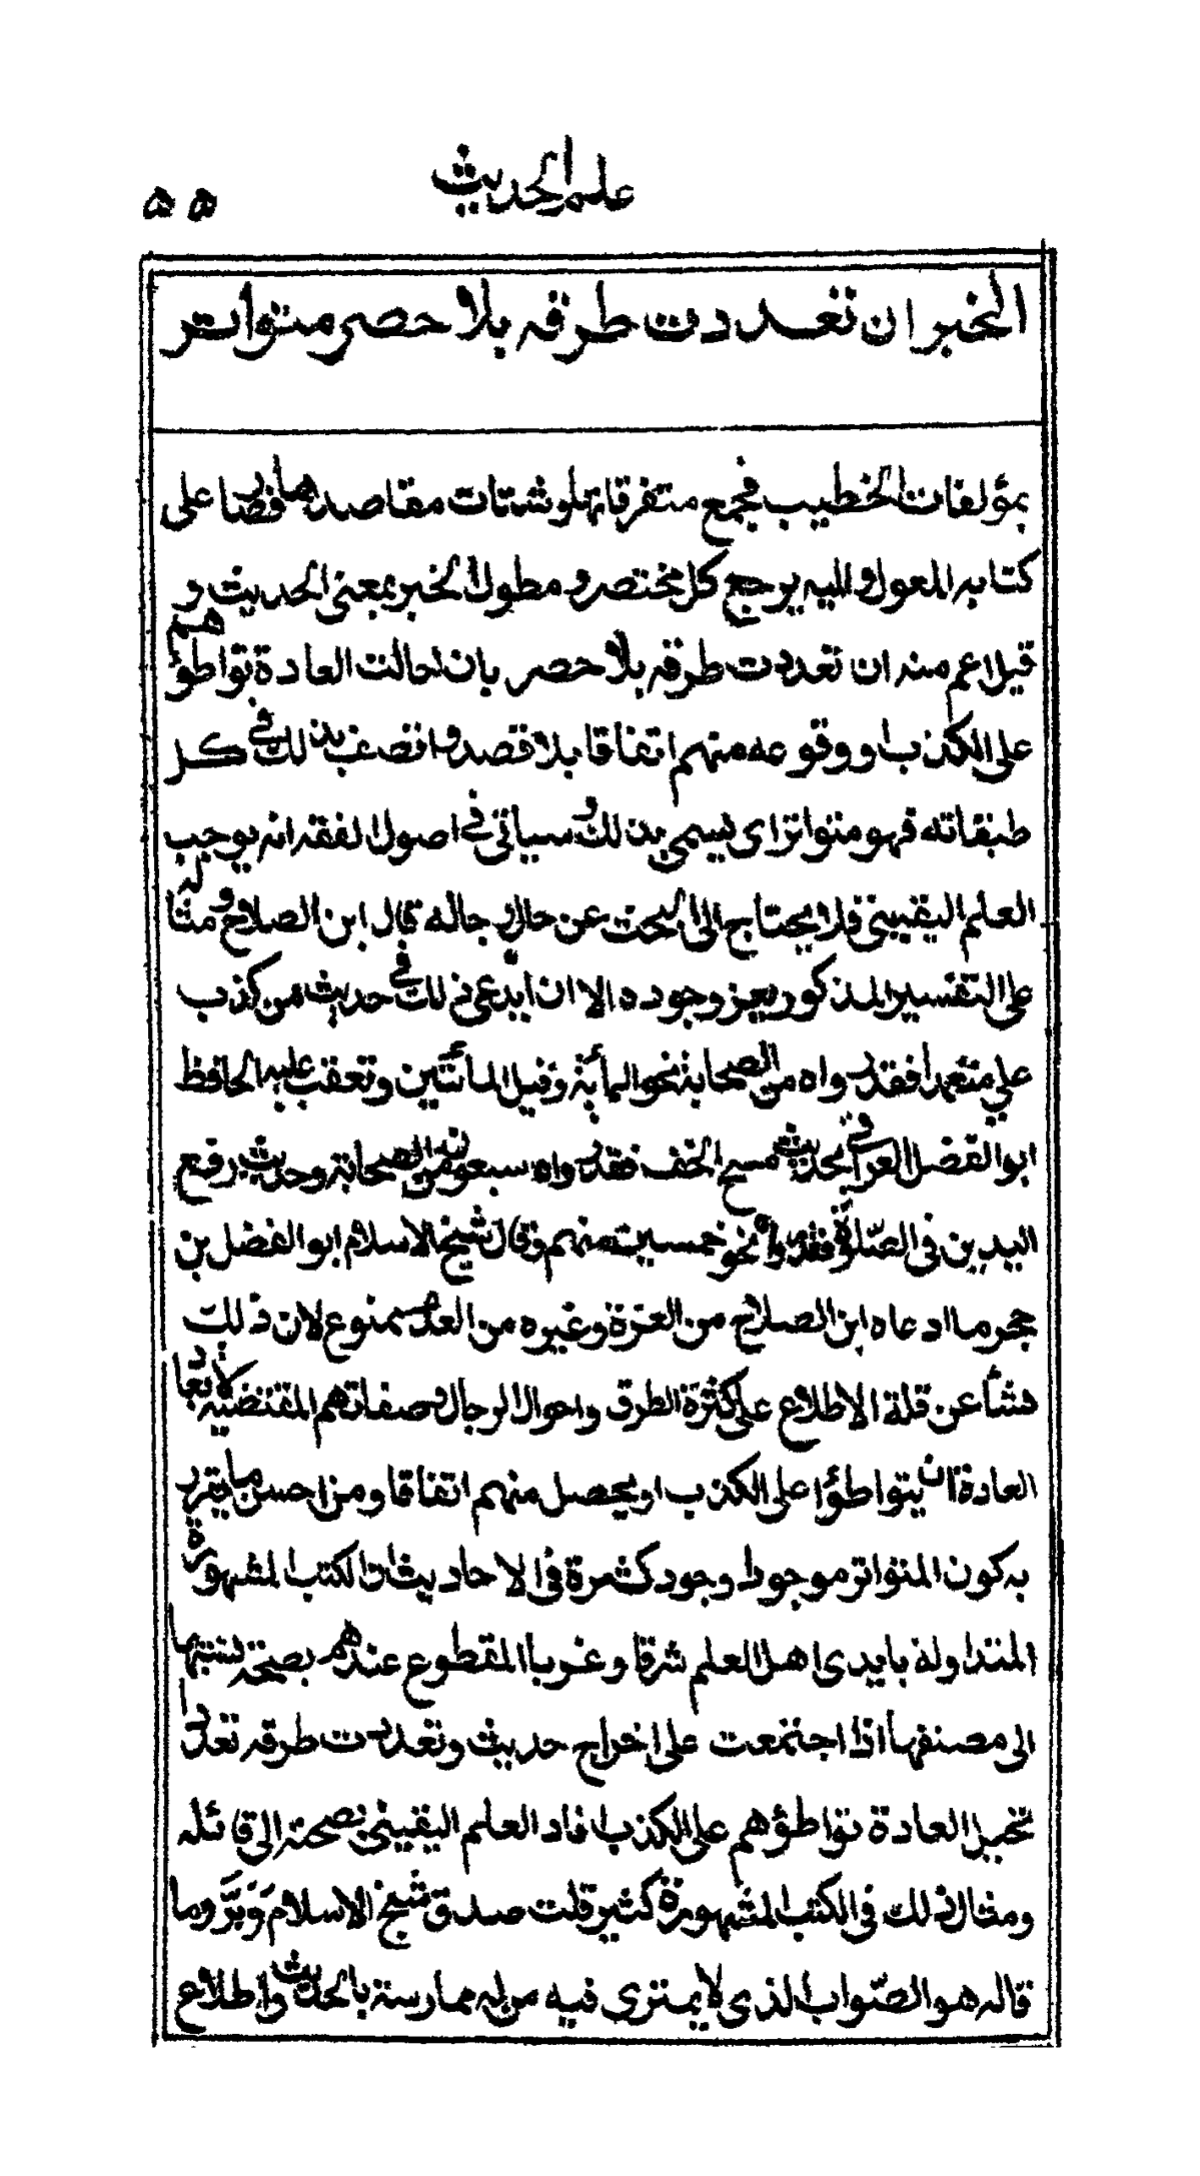 علم الحديث
٥٥
الخبر ان تعددت طرقه بلا حصر متواتر
بمؤلفات الخطيب فجمع متفرقاتها وشتات مقاصدها فصار على
كتابه المعول واليه يرجع كل مختصر و مطول الخبر بمعنى الحديث و
قيل اعم منه ان تعددت طرقه بلا حصر بان احالت العادة تواطؤهم
على الكذب او وقوعه منهم اتفاقا بلا قصد واتصف بذلك في كل
طبقاته فهو متواتر اى يسمى بذلك وسياتي في اصول الفقه انه يوجب
العلم اليقيني فلا يحتاج الى البحث عن حال رجاله قال ابن الصلاح ومثاله
على التفسير المذكور يعز وجوده الا ان يدعى ذلك في حديث من كذب
علي متعمدا فقد رواه من الصحابة نحو المائة وقيل المائتين وتعقب عليه الحافظ
ابو الفضل العراقي بحديث مسح الخف فقد رواه سبعون من الصحابة وحديث رفع
اليدين في الصلوة فقد رواه نحو خمسين منهم وقال شيخ الاسلام ابو الفضل بن
حجر ما ادعاه ابن الصلاح من العزة وغيره من العدم ممنوع لان ذلك
نشأ عن قلة الاطلاع على كثرة الطرق واحوال الرجال وصفاتهم المقتضية لابعاد
العادة ان يتواطؤا على الكذب او يحصل منهم اتفاقا ومن احسن ما يقرر
به كون المتواتر موجودا وجود كثرة في الاحاديث ان الكتب المشهورة
المتداولة بايدى اهل العلم شرقا وغربا المقطوع عندهم بصحة نسبتها
الى مصنفها اذا اجتمعت على اخراج حديث وتعددت طرقه تعددا
تحيل العادة تواطؤهم على الكذب افاد العلم اليقيني بصحته الى قائله
ومثال ذلك في الكتب المشهورة كثير قلت صدق شيخ الاسلام وَبَرَّ وما
قاله هو الصّواب الذى لا يمترى فيه من له ممارسة بالحديث واطلاع